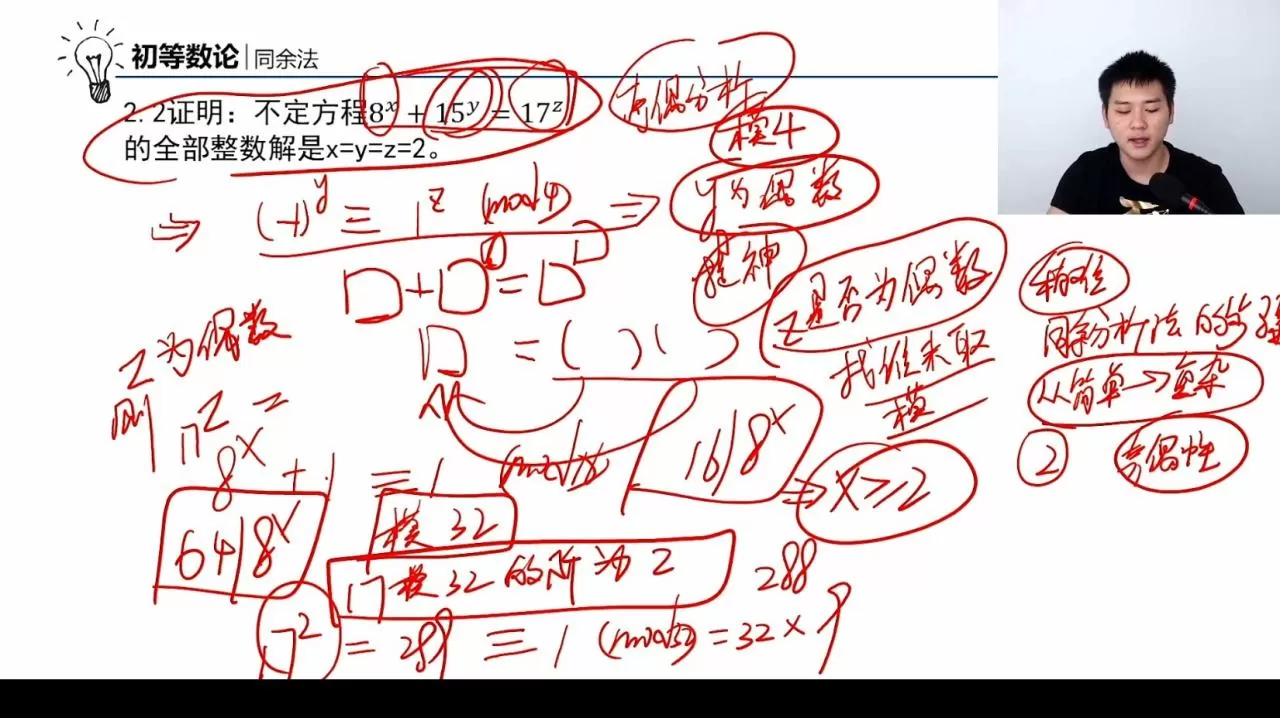 初等数论 | 同余法
2. 2证明：不定方程8^x + 15^y = 17^z
的全部整数解是x=y=z=2。
奇偶分析
模4
⇒ (-1)^y ≡ 1^z (mod4) ⇒ y为偶数
□+□=□
精神
z是否为偶数
□ = ( )( )
找谁来取
模
同余分析法的
从简单→复杂
② 奇偶性
z为偶数
则 17^z =
8^x + 1 ≡ 1
16|8^x ⇒ x≥2
64|8^x
模 32
17模32的阶为2
288
17^2 = 289 ≡ 1 (mod32) = 32×9